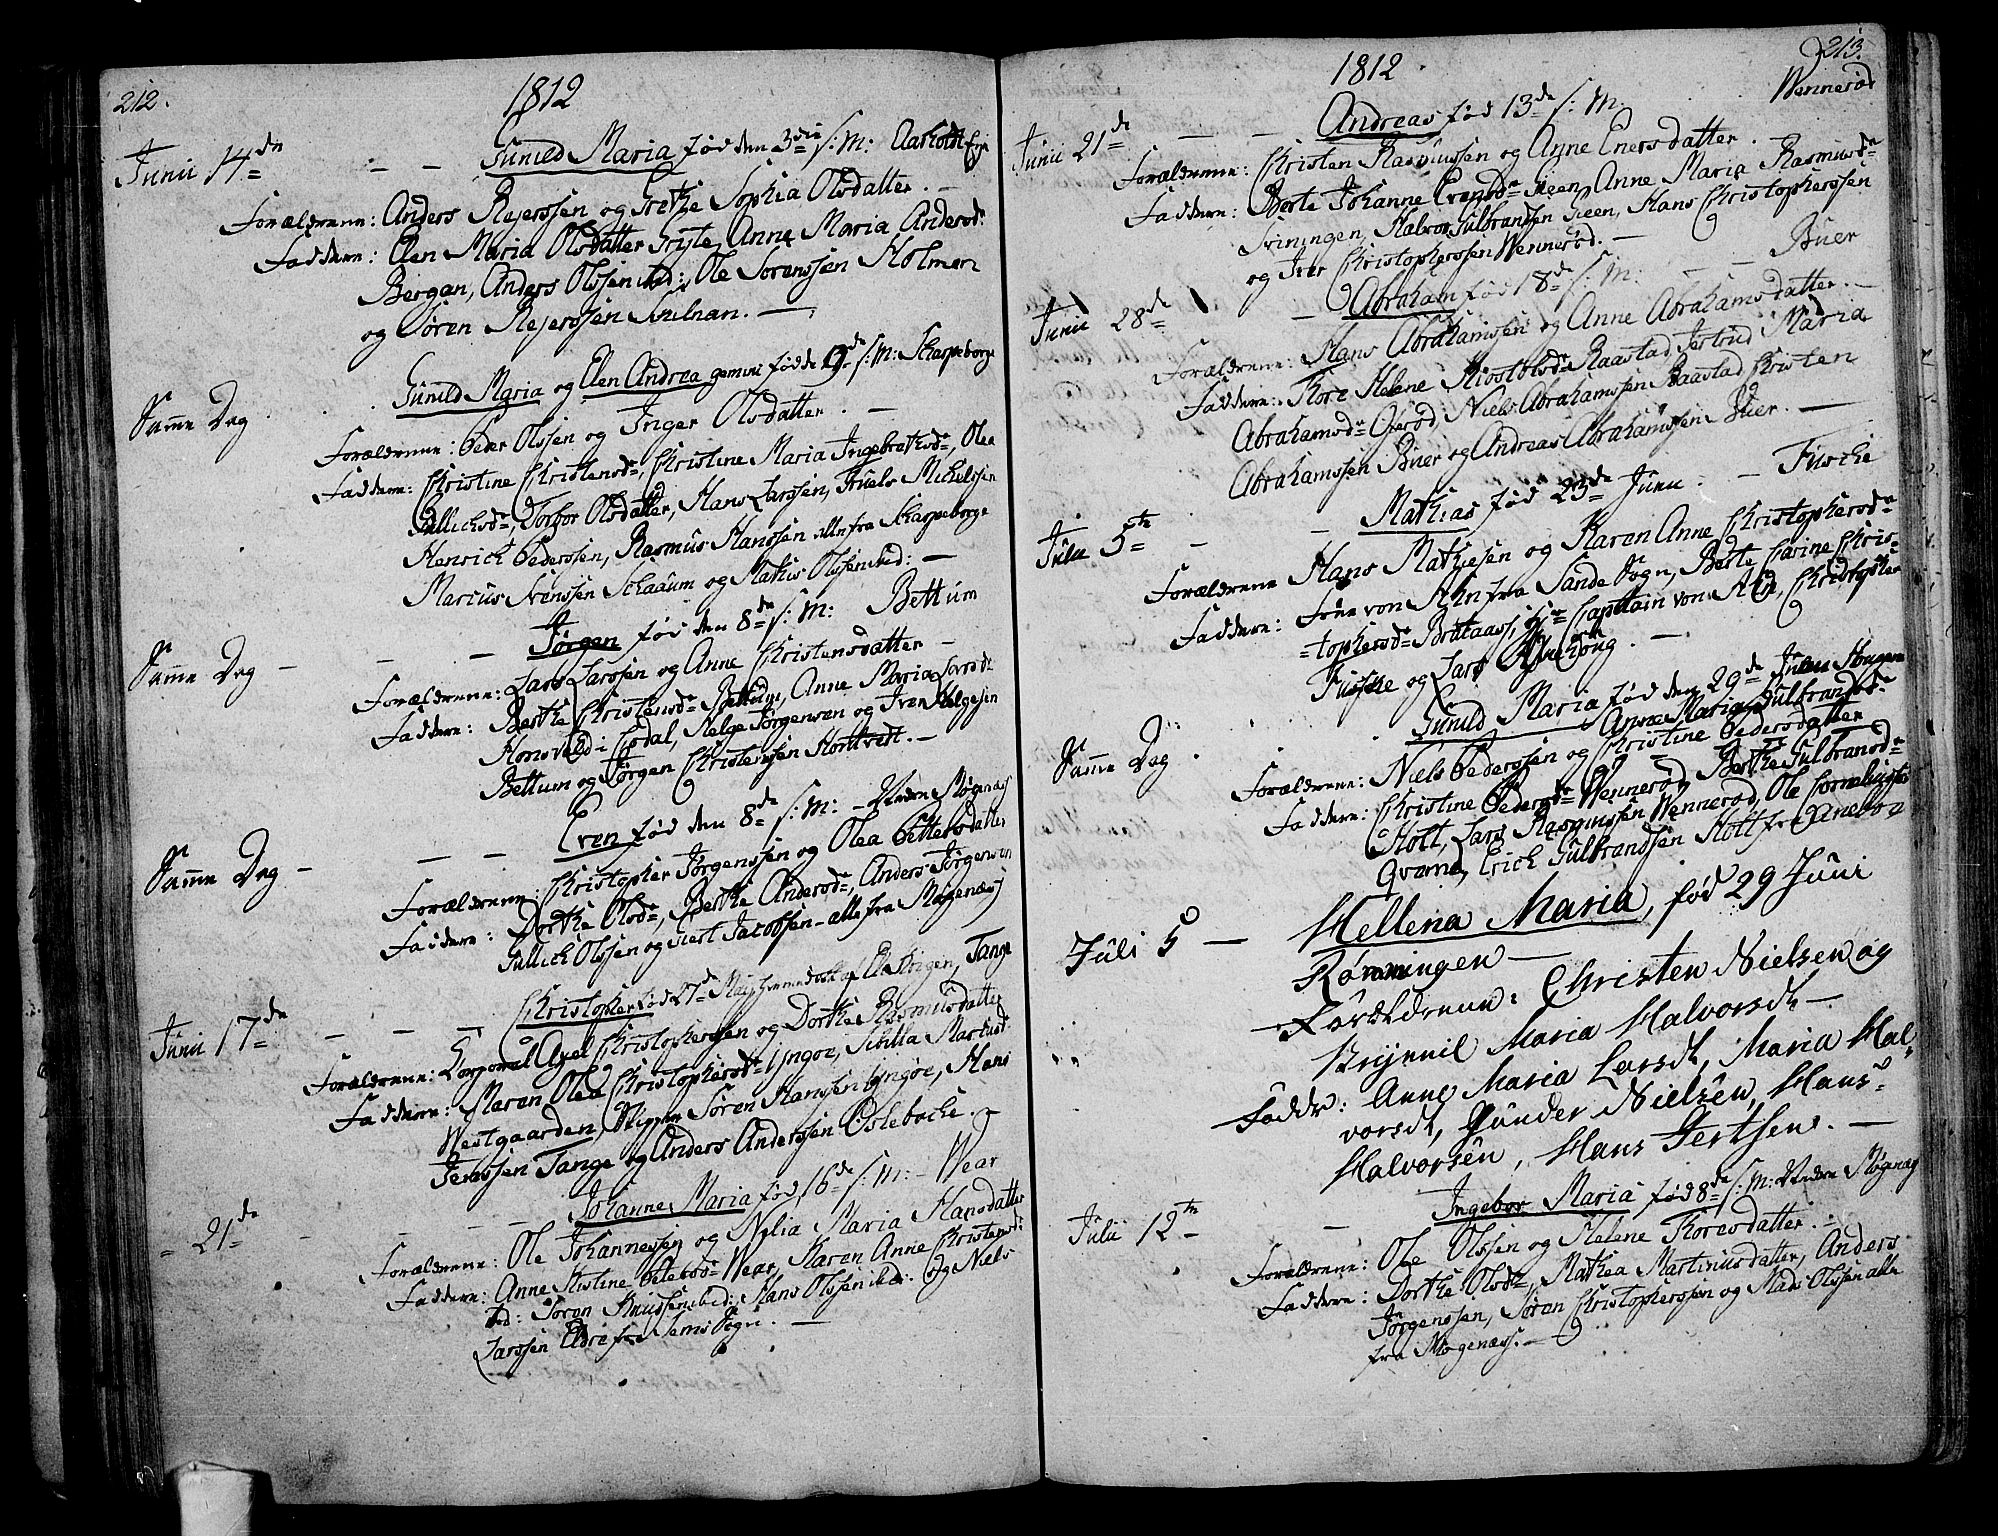 212.
1812
Junii 14de — — Gunild Maria fød den 3die s: M: Aarholt Eje
Forældrene: Anders Rejerssen og Grethe Sophia Olsdatter. —
Faddere: Elen Maria Olsdatter Gryte, Anne Maria Andersd:
Bergan, Anders Olssen ibid:, Ole Sørenssen Holmen
og Søren Rejerssen —
Samme Dag . . Gunild Maria og Elen Andrea gemini fødde 9de s: M: Scharpeborge
Forældrene: Peder Olssen og Inger Olsdatter. —
Faddere: Christine Christensdr, Christine Maria Ingebretsdr, Olea
Gullichsdr, Torbor Olsdatter, Hans Larssen, Truels Michelssen
Henrich Pederssen, Rasmus Hanssen alle fra Scharpeborge
Marcus Svenssen Schaaum og Mathis Olssen ibid: —
Samme Dag — — — Jørgen fød den 8de s: M: Bettum
Forældrene: Lars Larssen og Anne Christensdatter —
Faddere: Berthe Christensdr Bettum, Anne Maria
i Helge Jørgensen og Iver Helgesen
Bettum og Jørgen Christenssen Hortvedt. —
Samme Dag — — — Even fød den 8de s: M: — Nedre Møgenæs
Forældrene: Christopher Jørgenssen og Olea Pettersdatter
Faddere: Dorthe Olsdr, Berthe Andersdr, Anders Jørgensen
Gullich Olssen og Giert Jacobssen — alle fra Møgenæs
Junii 17de — — — Christopher fød 27de Maj hjemmedøbt af Tange
Forældrene: Corporal Axel Christopherssen og Dorthe Rasmusdatter
Faddere: Maren Olea Christophersdr Yngøe, Sibilla Marcusd:
Westgaarden, Skipper Søren Hanssen Yngøe, Hans
Jenssen Tange og Anders Anderssen Oslebache. —
— 21de — — — Johanne Maria fød 16de s: M: — Wear
Forældrene: Ole Johannessen og Nilia Maria Hansdatter
Faddere: Anne Kistine Petersdr Wear, Karen Anne Christensd:
ibd: Søren Knussen ibid: Hans Olssen ibid: og Niels
Larssen Eldre fra Sems Sogn. —
213.
1812.
Junii 21de — — Andreas fød 13de s: M. Wennerød
Forældrene: Christen Rasmussen og Anne Enersdatter.
Faddere: Berte Johanne Evensdr Steen, Anne Maria Rasmusdr
Sviningen, Halvor Gulbrandsen Steen, Hans Christopherssen
og Iver Christopherssen Wennerød. —
Junii 28de — Abraham fød 18de s: M: — — Buer
Forældrene: Hans Abrahamssen og Anne Abrahamsdatter. —
Faddere: Thore Helene Raastad, Jertrud Maria
Abrahamsdr Niels Abrahamssen Raastad, Christen
Abrahamssen Buer og Andreas Abrahamssen Buer. —
Julii 5te — — Mathias fød 23de Junii. — Fusche
Forældrene Hans Mathiesen og Karen Anne Christophersdr
Faddere: Frue von Ahn fra Sande Sogn, Berte Carine Chris-
=tophersdr Bentaas, Hr Capitain von Ahn, Christopher
Fusche og Lars —
Samme Dag . . . Gunild Maria fød den 29de Junii
Forældrene: Niels Pederssen og Christine Pedersdatter
Anne Maria Gulbrandsdr
Faddere: Christine Pedersdr Wennerød, Berthe Gulbransdr
Holt, Lars Rasmussen Wennerød, Ole Corneliussen
Qvarne, Erich Gulbrandsen Holt fra
Juli 5 — Hellena Maria, fød 29 Juni
Rønningen —
Forældrenne: Christen Nielsen og
Brynnil Maria Halvorsdt —
Faddr: Anne Maria Larsdt, Maria Hal-
vorsdt, Gunder Nielsen, Hans
Halvorsen, Hans Jertsen. —
Julii 12te — Ingebor Maria fød 8de s: M: Nedre Møgenæs
Forældrene: Ole Olssen og Helene Thoresdatter. —
Faddere: Dorthe Olsdr, Mathea Martinusdatter, Anders
Jørgenssen, Søren Christopherssen og Mads Olssen alle
fra Møgenæs. —